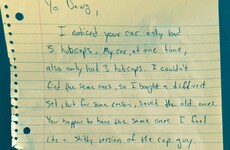 Yo Dawg,
I noticed your car only had
3 hubcaps. My car, at one time,
also only had 3 hubcaps. I couldn't
find the same ones, so I bought a different
set, but for some reason, saved the old ones.
You happen to have the same ones. I feel
like a shitty version of the cap guy